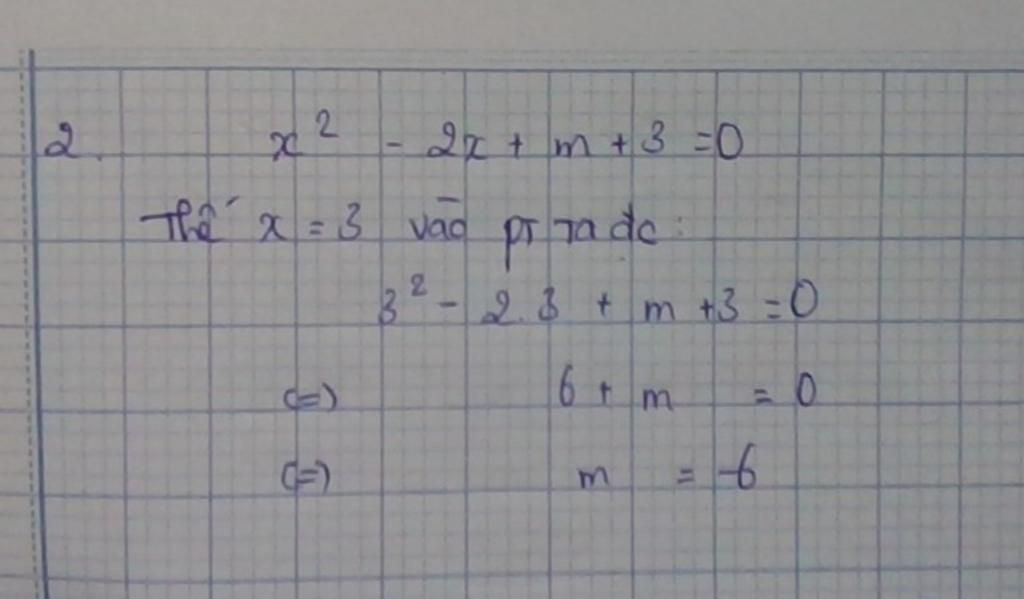 2. x² - 2x + m + 3 = 0
Thế x = 3 vào pt ta đc :
3² - 2.3 + m + 3 = 0
(=) 6 + m = 0
(=) m = -6